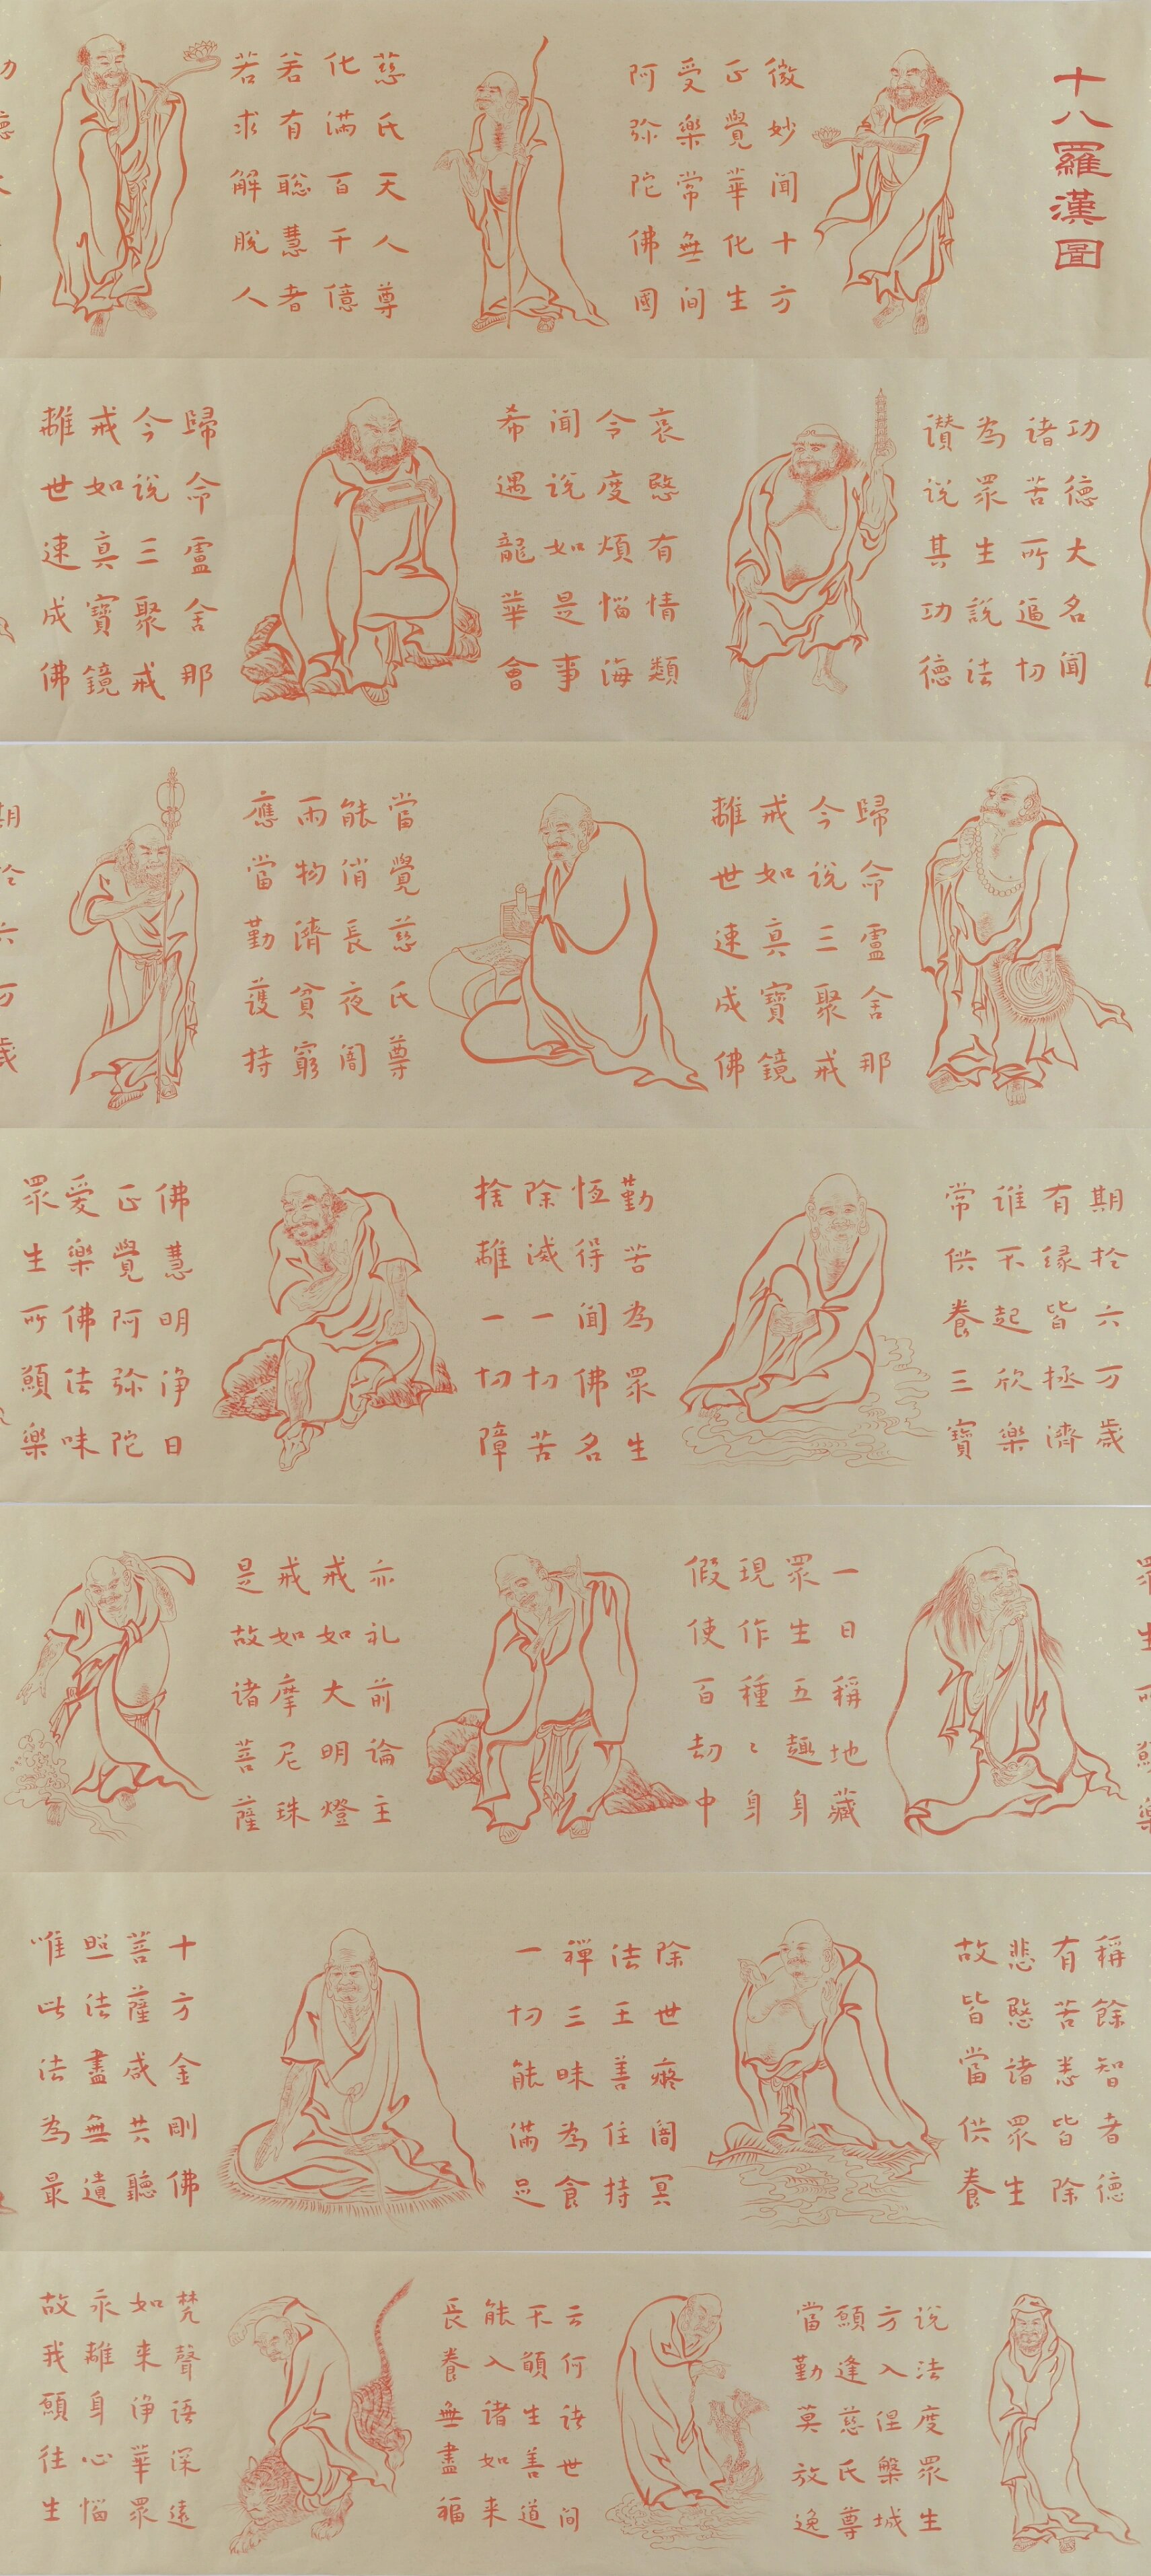 十八羅漢圖
微妙闻十方
正覺華化生
受樂常無间
阿弥陀佛國
慈氏天人尊
化滿百千億
若有聡慧者
若求解脱人
功德大名闻
诸苦所逼切
為眾生說法
讃说其功德
哀愍有情類
令度煩惱海
闻说如是事
希遇龍華會
歸命盧舍那
今说三聚戒
戒如真寶鏡
離世速成佛
歸命盧舍那
今说三聚戒
戒如真寶鏡
離世速成佛
當覺慈氏尊
能消長夜闇
雨物濟貧窮
應當勤護持
期於六万歲
有缘皆拯濟
谁不起欣樂
常供養三寶
勤苦為眾生
恆得闻佛名
除滅一切苦
捨離一切障
佛慧明净日
正覺阿弥陀
愛樂佛法味
眾生所願樂
一日稱地藏
眾生五趣身
現作種々身
假使百劫中
亦礼前論主
戒如大明燈
戒如摩尼珠
是故诸菩薩
稱餘智者德
有苦悉皆除
悲愍诸眾生
故皆當供養
除世癡闇冥
法王善住持
禪三昧為食
一切能滿足
十方金剛佛
菩薩咸共聽
照法盡無遺
唯此法為最
说法度眾生
方入涅槃城
願逢慈氏尊
當勤莫放逸
云何诸世间
不願生善道
能入诸如来
長養無盡福
梵聲语深遠
如来净華眾
永離身心惱
故我願往生